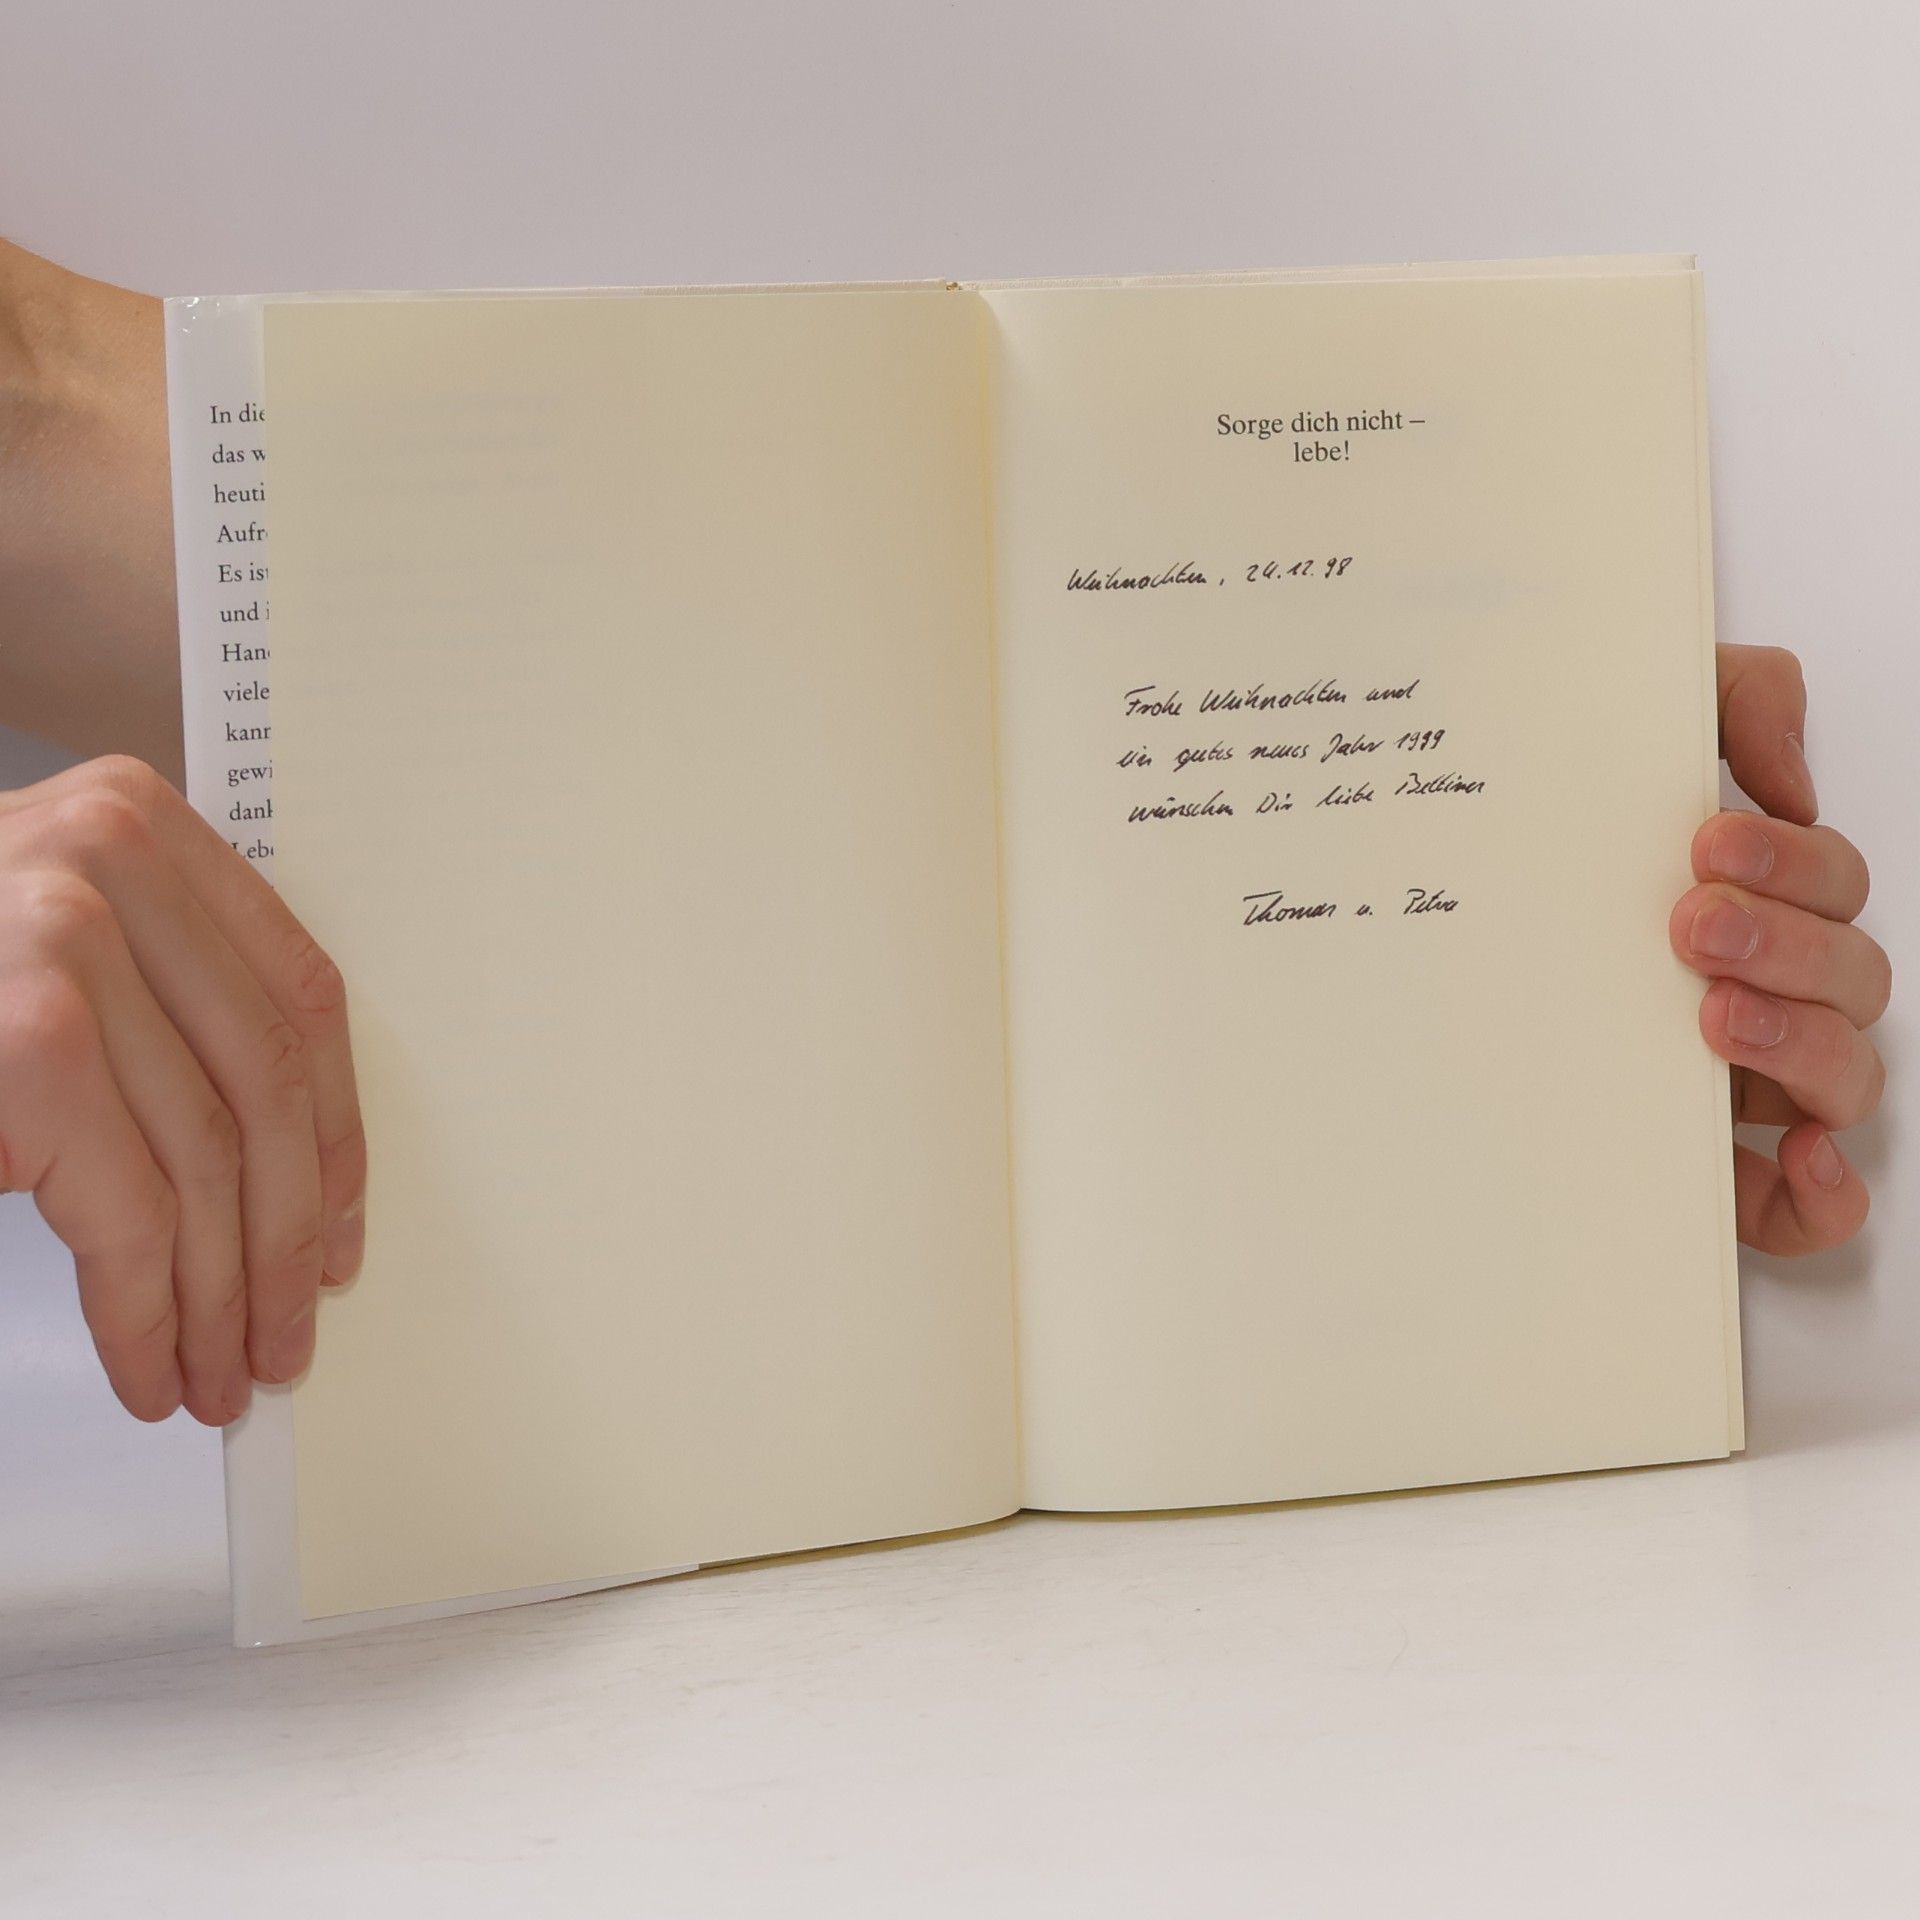 In die
das w
heuti
Aufr
Es ist
und i
Hand
viele
kann
gewi
dank
Lebe
Sorge dich nicht –
lebe!
Weihnachten, 24.12.98
Frohe Weihnachten und
ein gutes neues Jahr 1999
wünschen Dir liebe Bettina
Thomas u. Petra